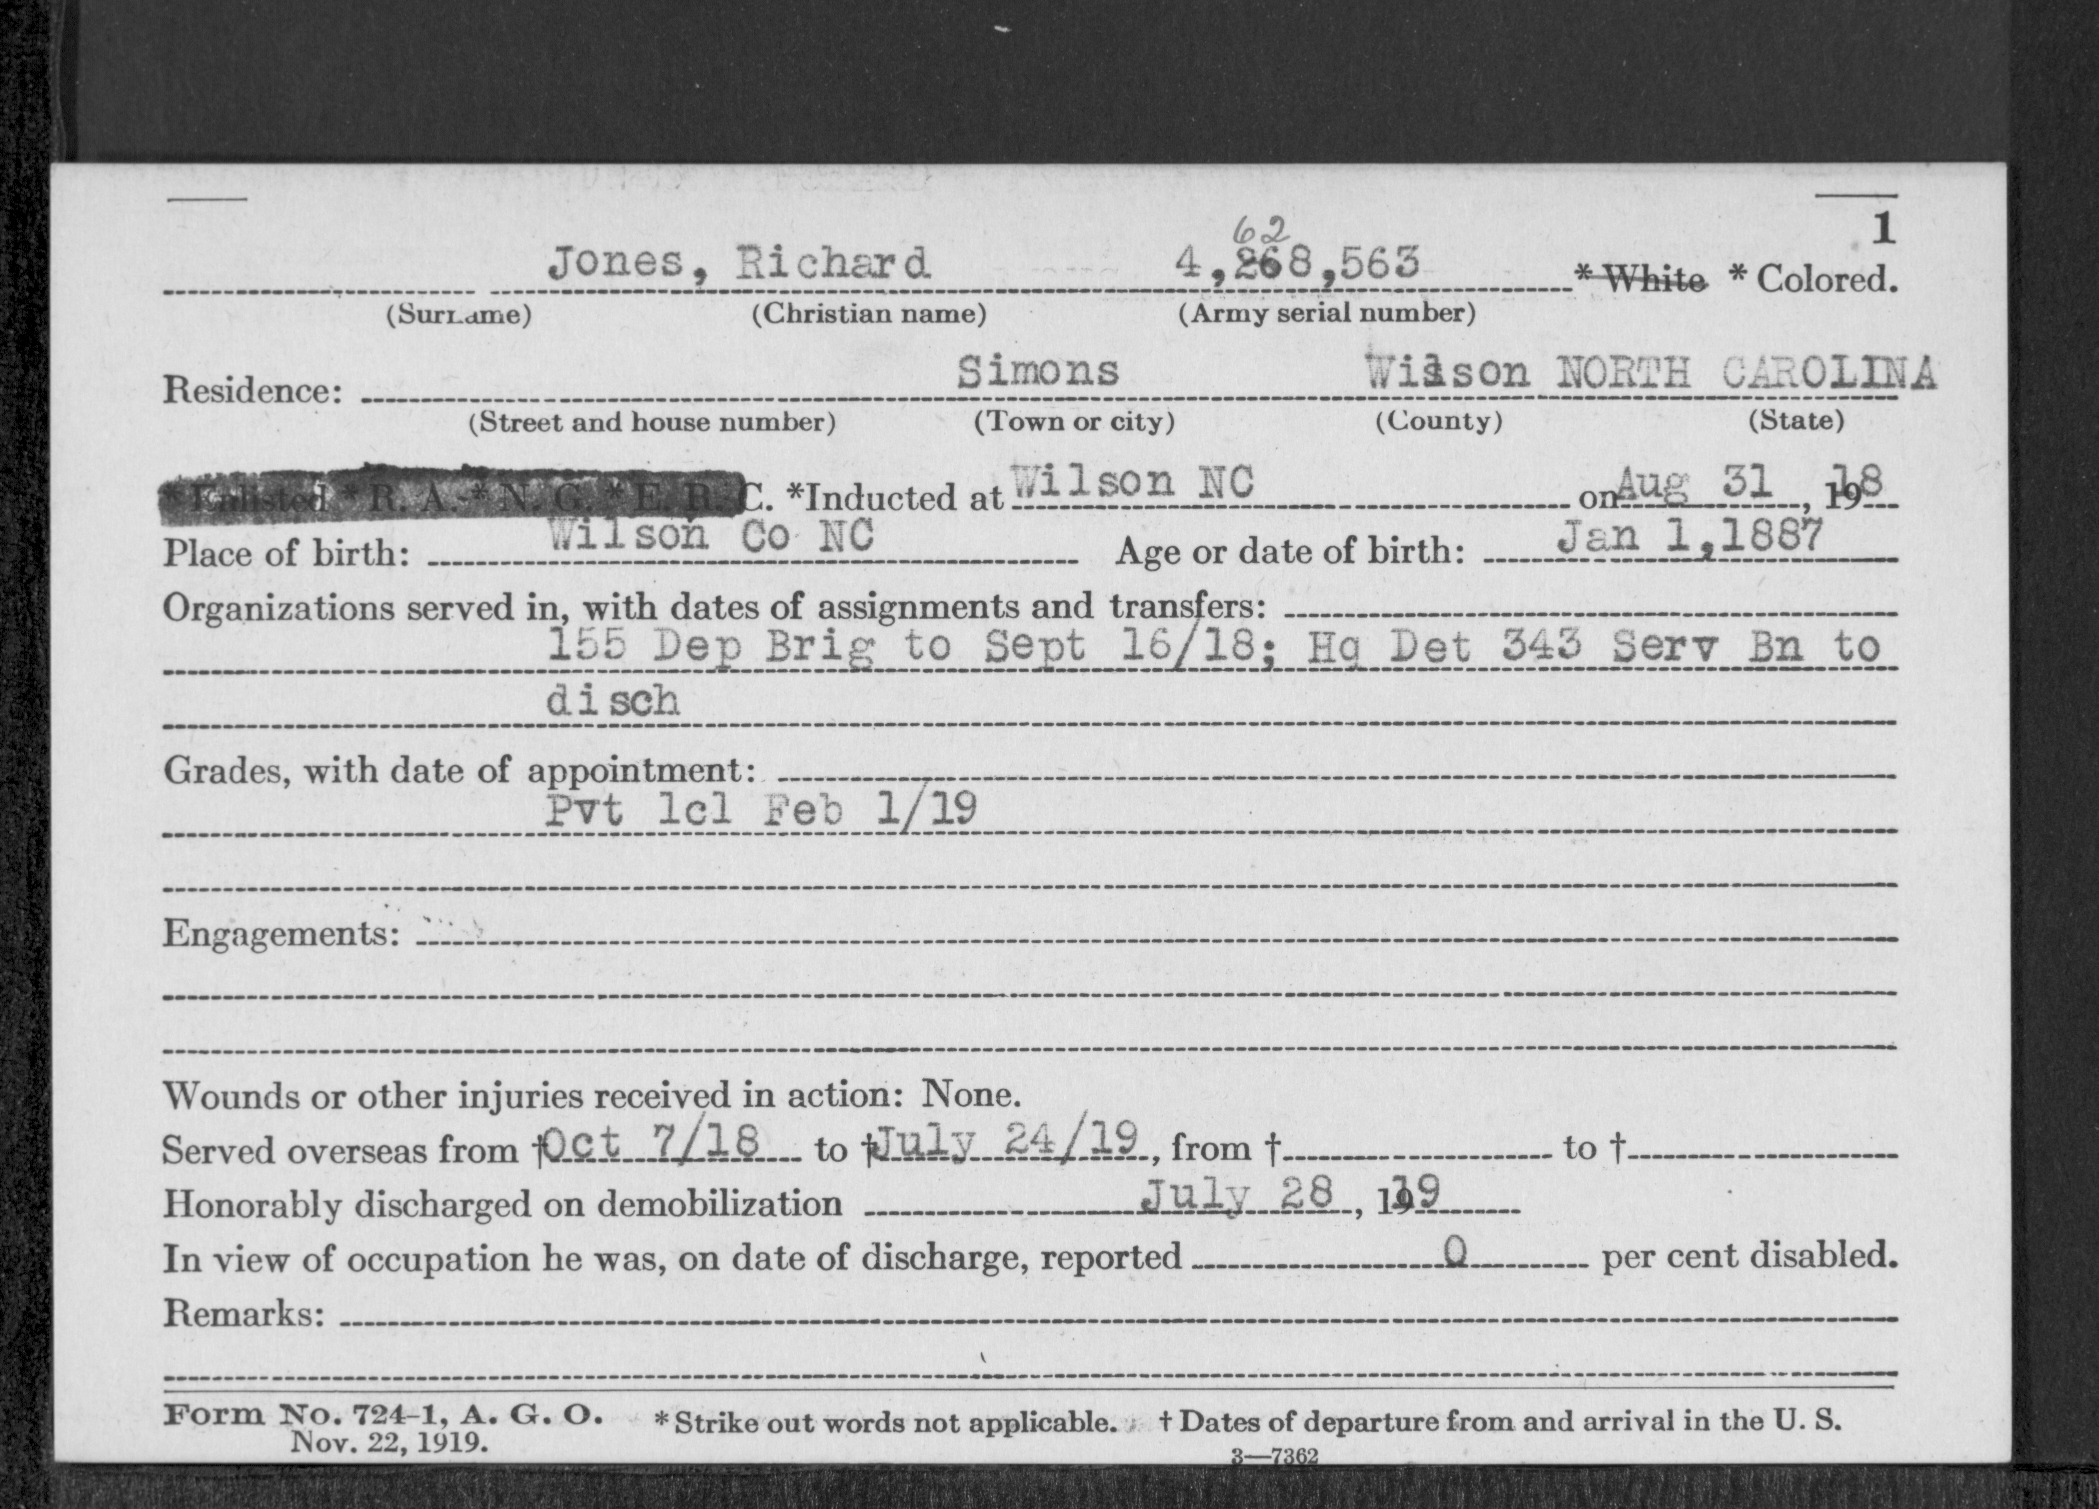 1
62
Jones, Richard 4,268,563 * White * Colored.
(Surname) (Christian name) (Army serial number)
Residence: Simons Wilson NORTH CAROLINA
(Street and house number) (Town or city) (County) (State)
* Enlisted * R. A. * N. G. * E. R. C. *Inducted at Wilson NC on Aug 31, 1918
Place of birth: Wilson Co NC Age or date of birth: Jan 1,1887
Organizations served in, with dates of assignments and transfers:
155 Dep Brig to Sept 16/18; Hq Det 343 Serv Bn to
disch
Grades, with date of appointment:
Pvt 1cl Feb 1/19
Engagements:
Wounds or other injuries received in action: None.
Served overseas from † Oct 7/18 to † July 24/19, from † to †
Honorably discharged on demobilization July 28, 1919
In view of occupation he was, on date of discharge, reported 0 per cent disabled.
Remarks:
Form No. 724-1, A. G. O. * Strike out words not applicable. † Dates of departure from and arrival in the U. S.
Nov. 22, 1919.
3—7362